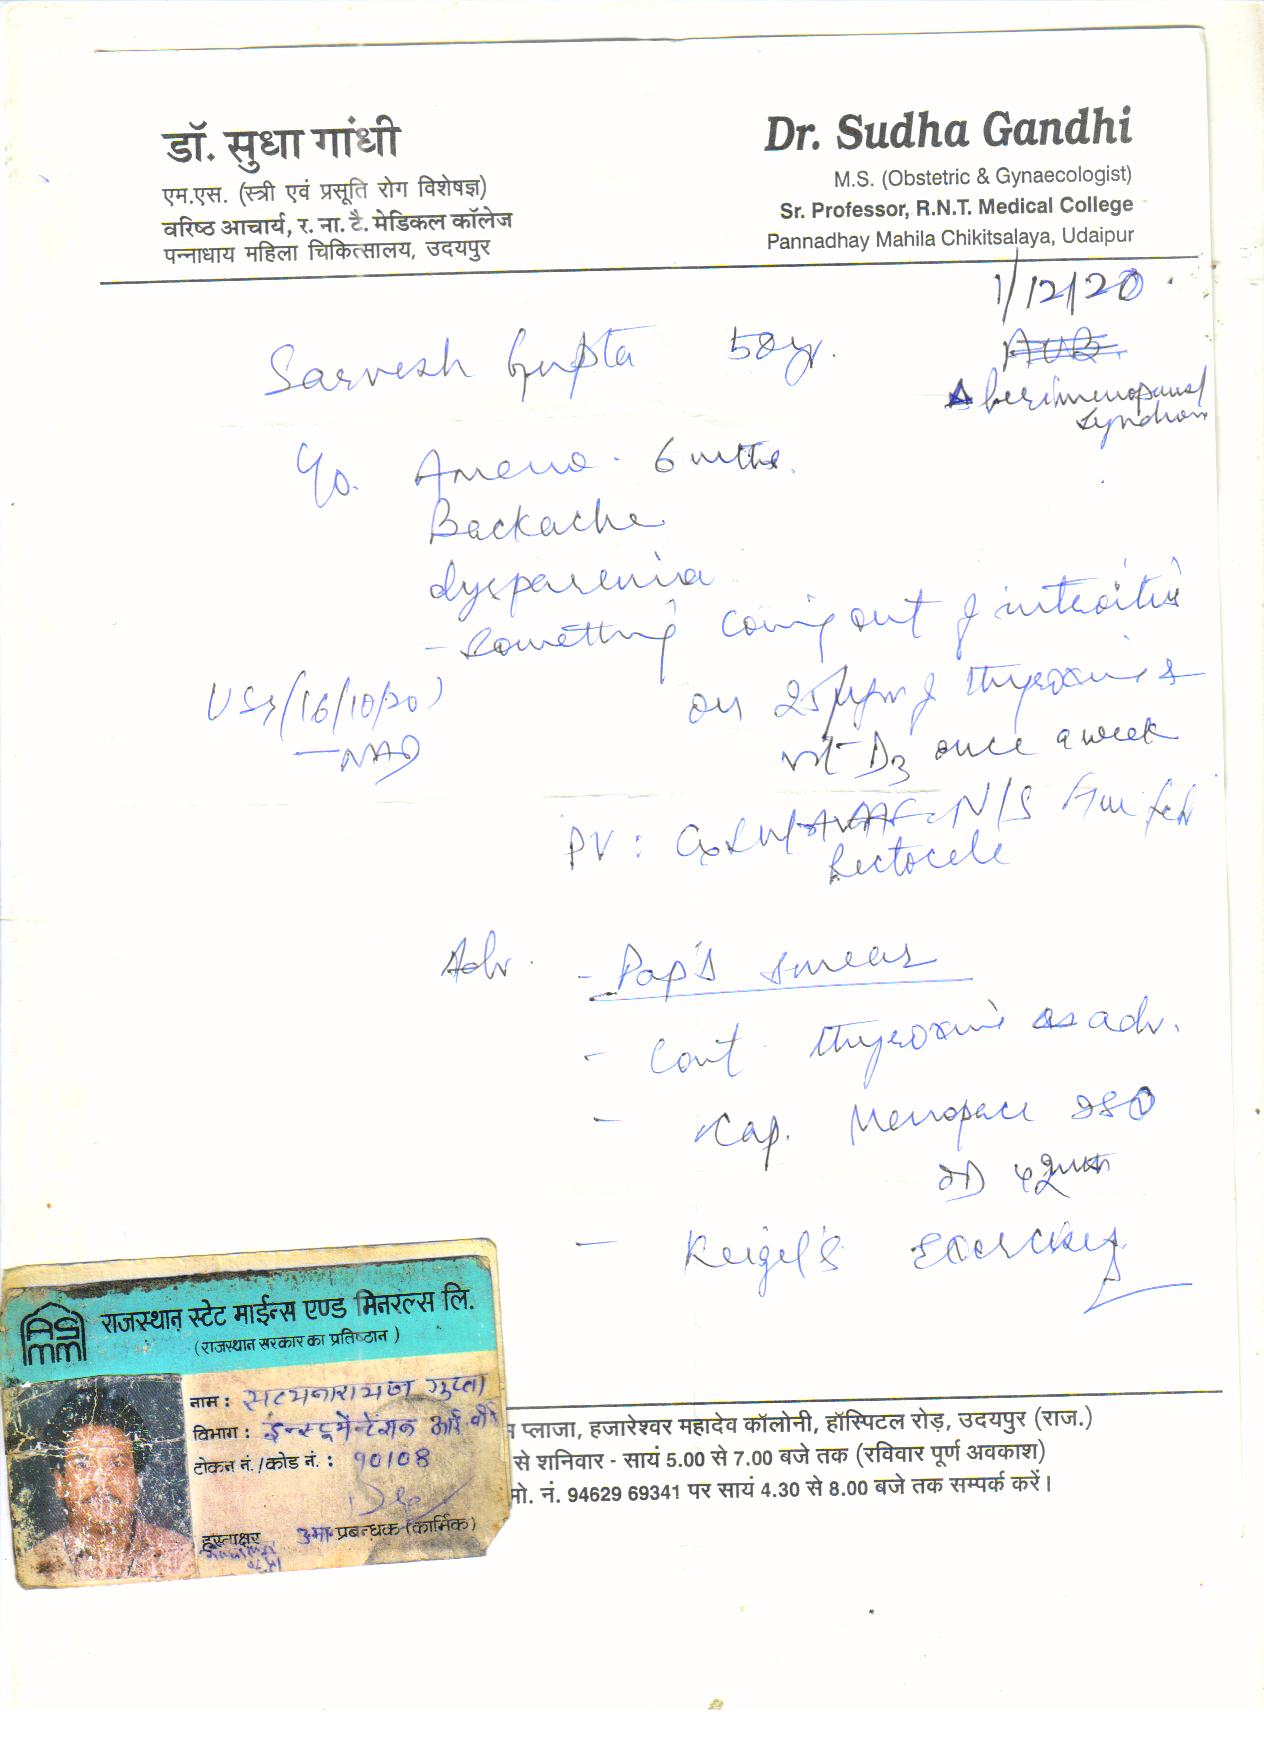 डॉ. सुधा गांधी
एम.एस. (स्त्री एवं प्रसूति रोग विशेषज्ञ)
वरिष्ठ आचार्य, र. ना. टै. मेडिकल कॉलेज
पन्नाधाय महिला चिकित्सालय, उदयपुर
Dr. Sudha Gandhi
M.S. (Obstetric & Gynaecologist)
Sr. Professor, R.N.T. Medical College
Pannadhay Mahila Chikitsalaya, Udaipur
1/12/20
Sarvesh Gupta 50yr.
AUB
Δ Perimenopausal
Syndrom
C/o. Ameno. 6 mths.
Backache
dyspareunia
- Something coming out of introitus
USG (16/10/20)
- NAD
on 25 μgm of thyroxine &
vit D3 once a week
PV: N/S
Rectocele
Adv. - Pap's smear
- Cont. thyroxine as adv.
- Cap. Menopace ISO
- Keigel's Exercises
राजस्थान स्टेट माईन्स एण्ड मिनरल्स लि.
(राजस्थान सरकार का प्रतिष्ठान)
नाम : सत्यनारायण गुप्ता
विभाग : ईन्स्ट्रूमेन्टेशन
टोकन नं./कोड नं. : 90108
हस्ताक्षर उप प्रबन्धक (कार्मिक)
प्लाजा, हजारेश्वर महादेव कॉलोनी, हॉस्पिटल रोड़, उदयपुर (राज.)
से शनिवार - सायं 5.00 से 7.00 बजे तक (रविवार पूर्ण अवकाश)
मो. नं. 94629 69341 पर सायं 4.30 से 8.00 बजे तक सम्पर्क करें।